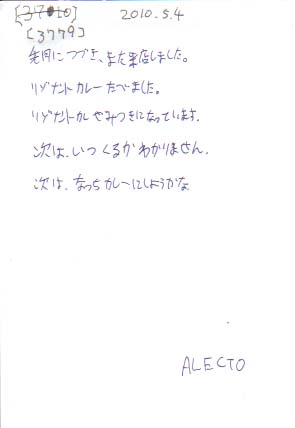 [3710] 2010.5.4
[3779]
先月につづき、また来店しました。
リゾナントカレーたべました。
リゾナントカレやみつきになっています.
次は、いつくるかわかりません.
次は、なっちカレーにしようかな
ALECTO